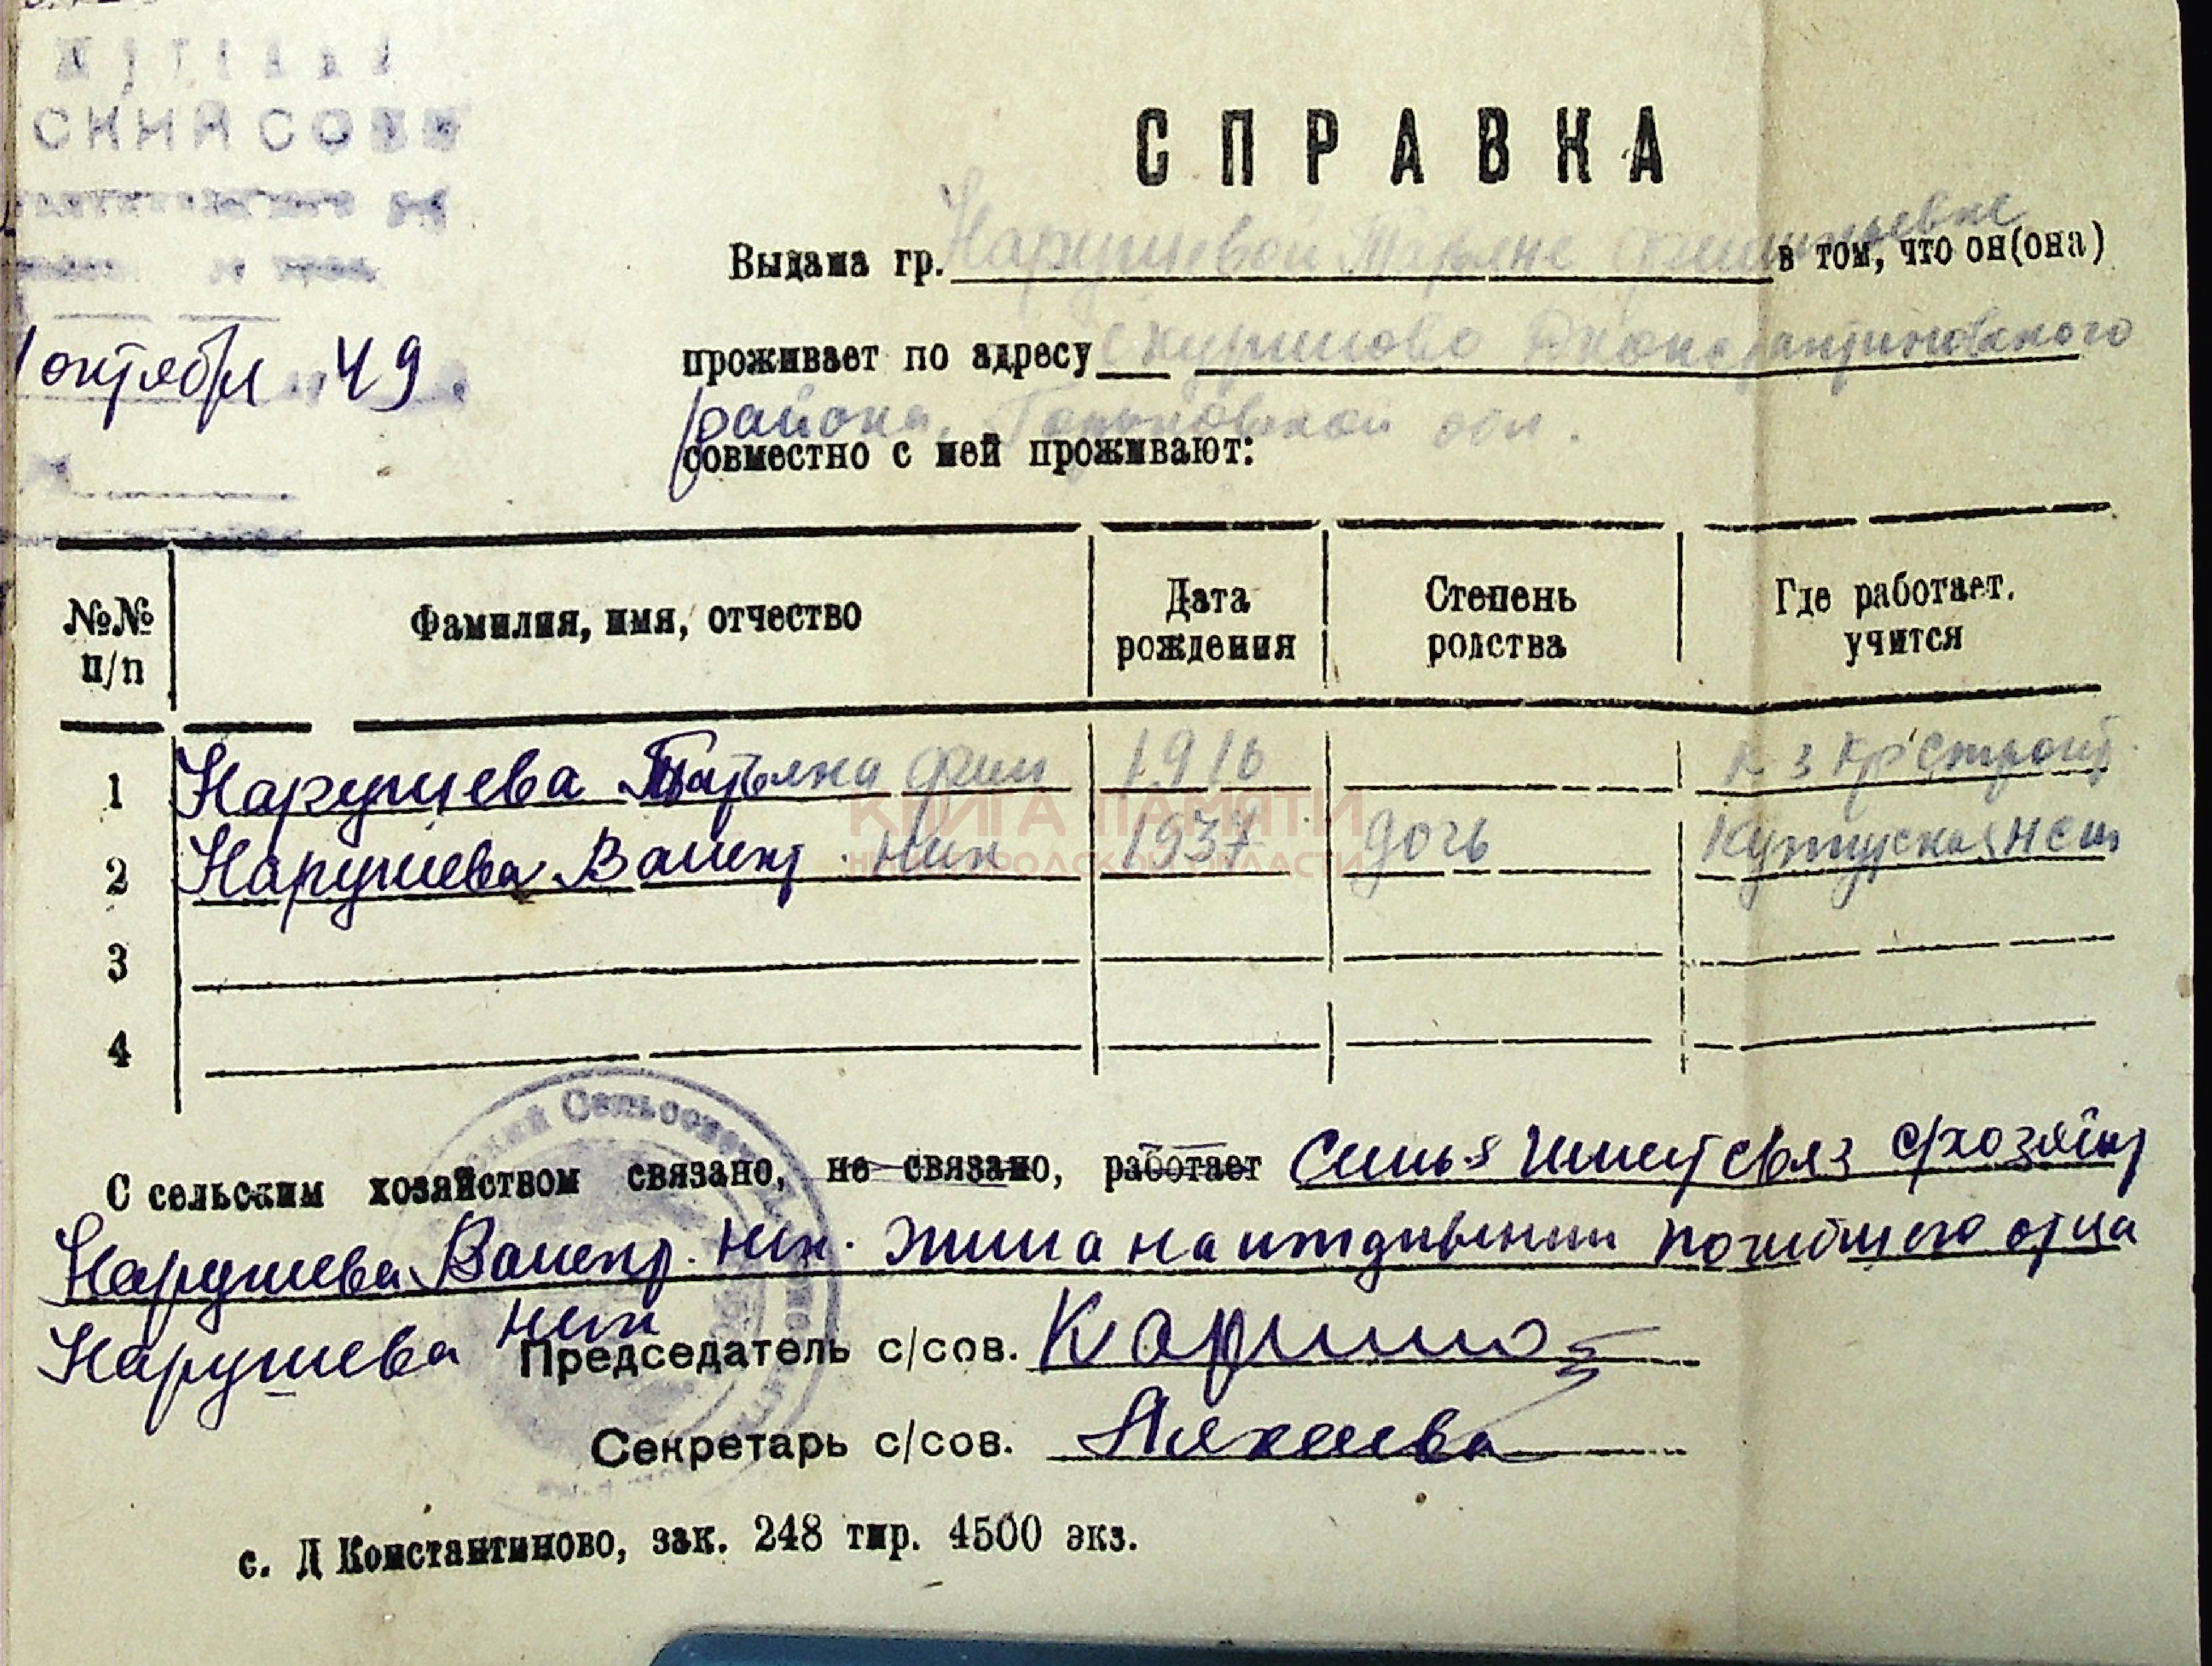 СКИЙ СОВЕ
СПРАВКА
Выдана гр. Нарушевой Татьяне в том, что он(она)
1 октября 49
проживает по адресу Дконстантиновского
района, Горьковской обл.
совместно с ней проживают:
№№ п/п
Фамилия, имя, отчество
Дата рождения
Степень родства
Где работает, учится
1 Нарушева Татьяна Фил 1916 к-з Кр Строит
2 Нарушева Валент Ник 1937 дочь
КНИГА ПАМЯТИ
НИЖЕГОРОДСКОЙ ОБЛАСТИ
3
4
Сельсовет
С сельским хозяйством связано, не связано, работает семья имеет связ с/хозяйст
Нарушева Валент. Ник. жила на иждивении погибшего отца
Нарушева Ник
Председатель с/сов.
Секретарь с/сов.
с. Д Константиново, зак. 248 тир. 4500 экз.